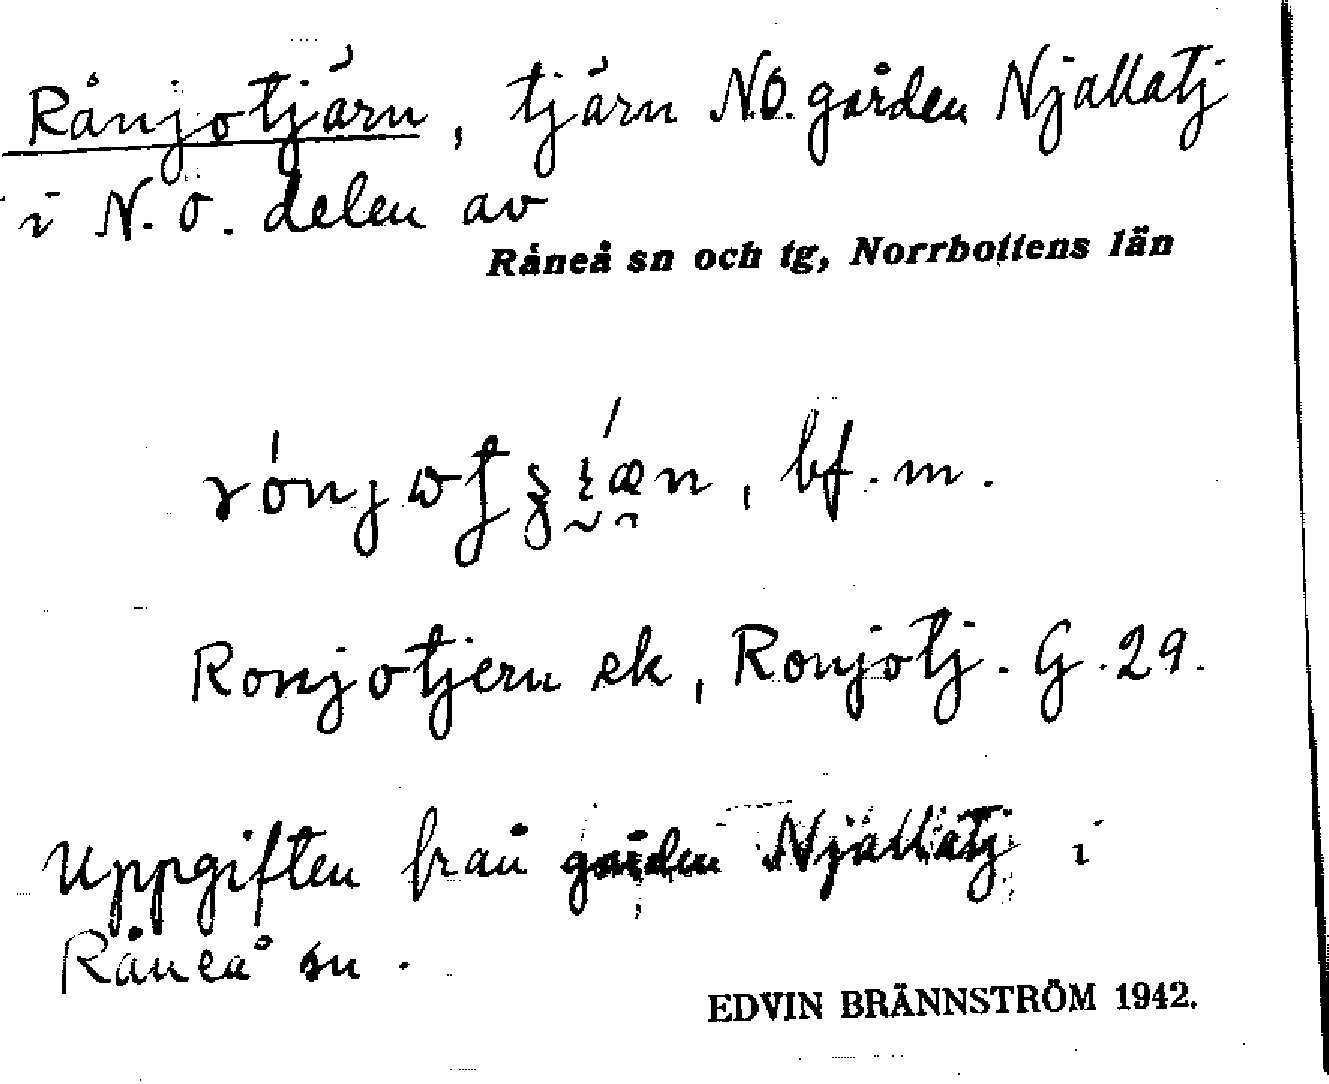 Rånjotjärn, tjärn NO. gården Njallatj
i N.Ö. delen av
Råneå sn och tg, Norrbottens län
bf. m.
Ronjotjern ek, Ronjotj. G. 29.
Uppgiften från gården Njallatj i
Råneå sn.
EDVIN BRÄNNSTRÖM 1942.